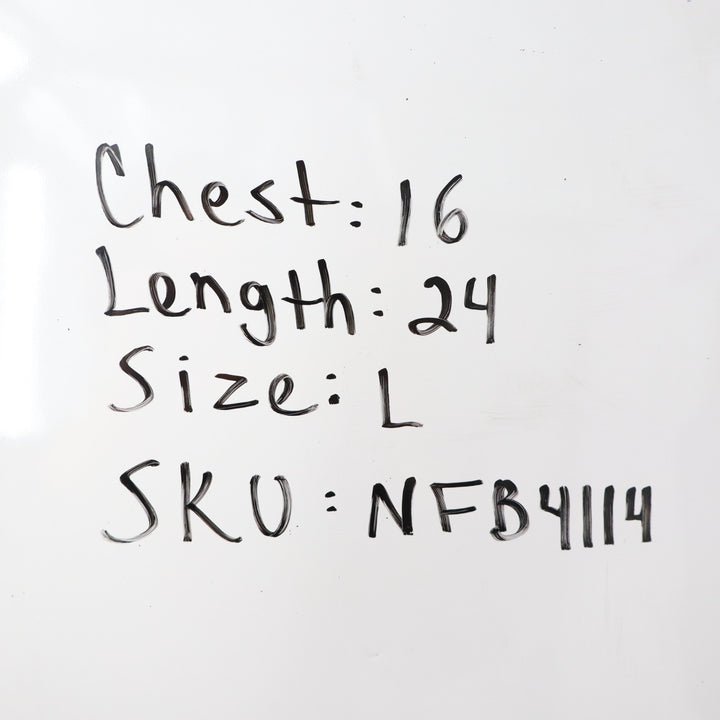 Chest: 16
Length: 24
Size: L
SKU: NFB4114